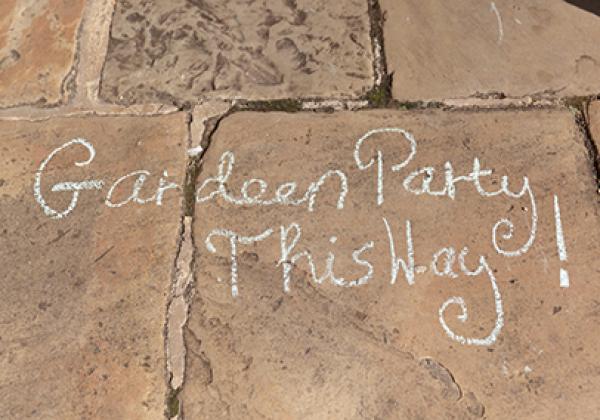 Gardeen Party
This Way!